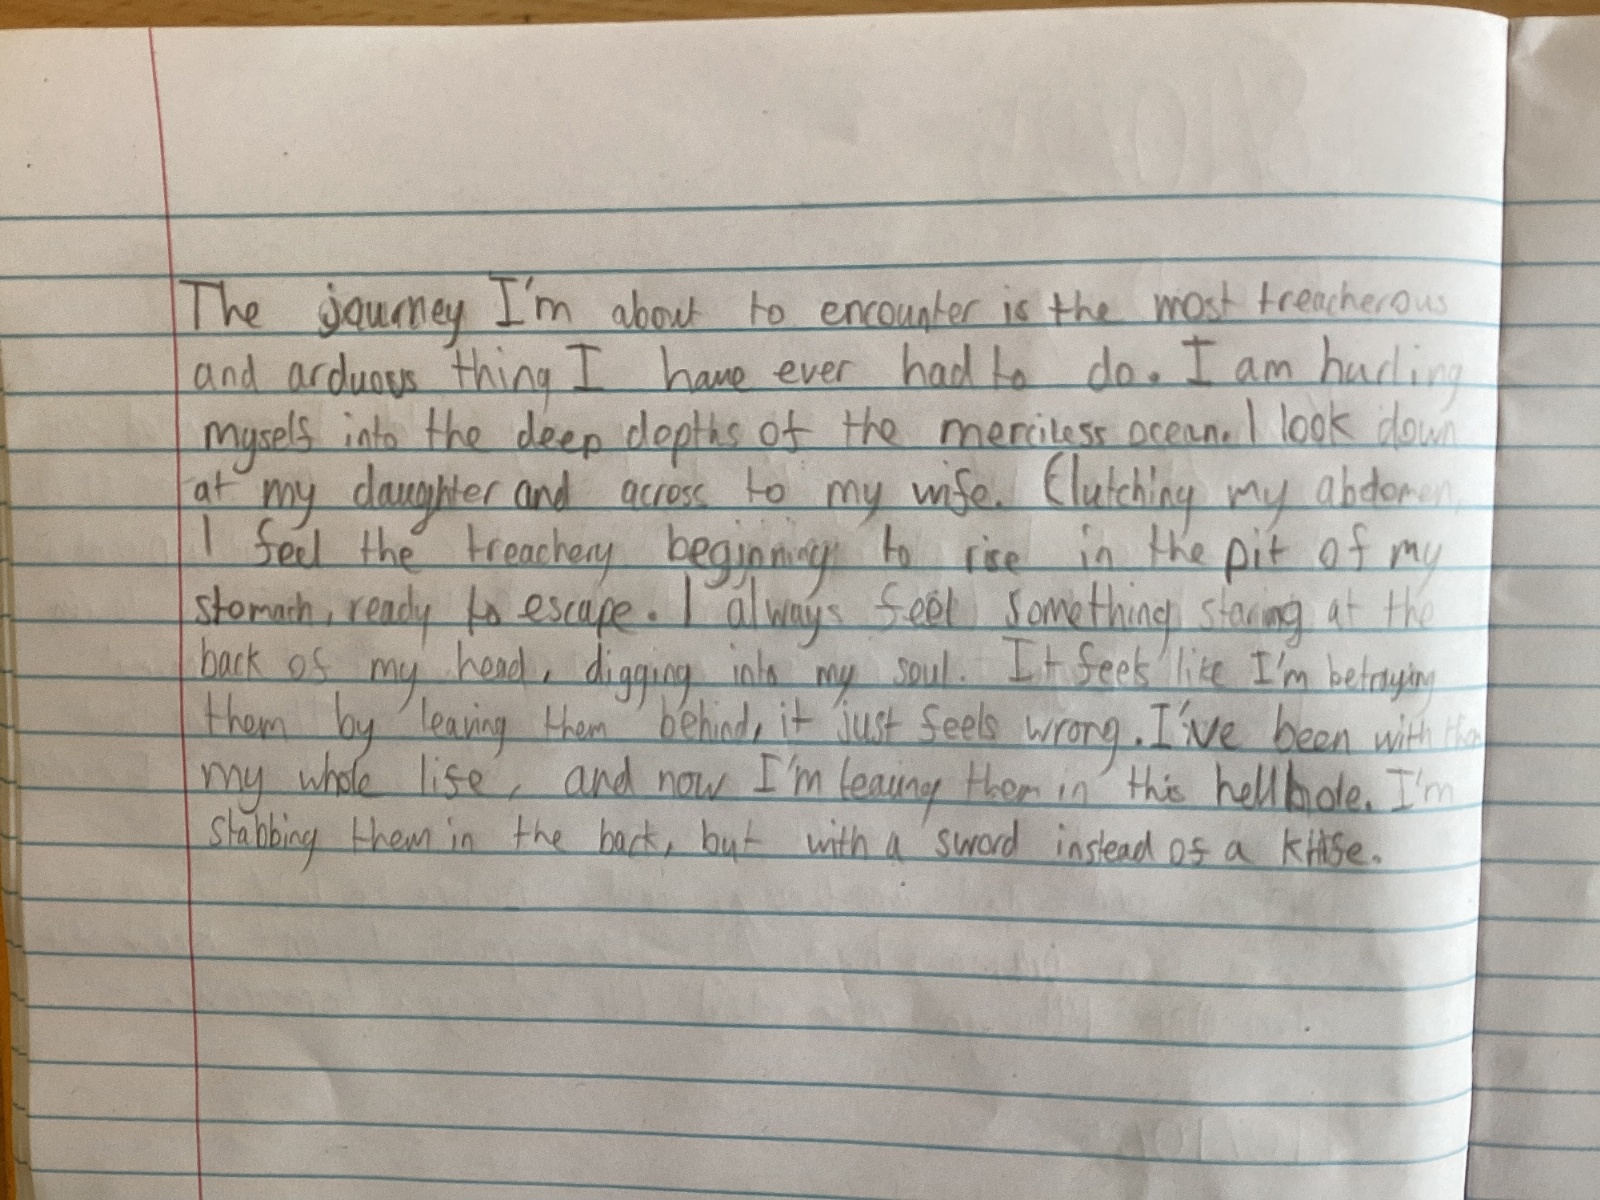 The journey I'm about to encounter is the most treacherous
and arduous thing I have ever had to do. I am hurling
myself into the deep depths of the merciless ocean. I look down
at my daughter and across to my wife. Clutching my abdomen,
I feel the treachery beginning to rise in the pit of my
stomach, ready to escape. I always feel something staring at the
back of my head, digging into my soul. It feels like I'm betraying
them by leaving them behind, it just feels wrong. I've been with them
my whole life, and now I'm leaving them in this hellhole. I'm
stabbing them in the back, but with a sword instead of a knife.